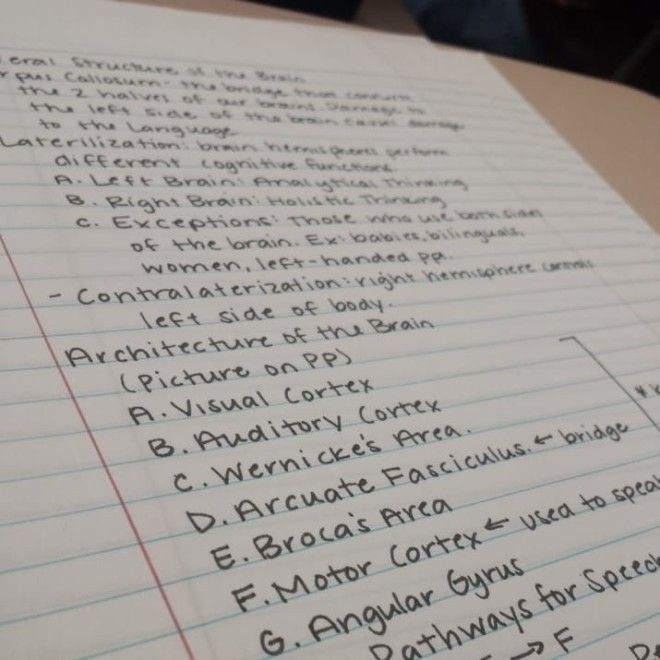 eral Structure of the Brain
rpus Callosum - the bridge that connects
the 2 halves of our brains. Damage to
the left side of the brain causes damage
to the Language
Laterilization: brain hemispheres perform
different cognitive functions.
A. Left Brain: Analytical Thinking
B. Right Brain: Holistic Thinking
C. Exceptions: Those who use both sides
of the brain. Ex: babies, bilinguals,
women, left-handed ppl.
- Contralaterization: right hemisphere controls
left side of body.
Architecture of the Brain
(Picture on PP)
A. Visual Cortex
B. Auditory Cortex
C. Wernicke's Area.
D. Arcuate Fasciculus. ← bridge
E. Broca's Area
F. Motor Cortex ← used to speak
G. Angular Gyrus
Pathways for Speech
→ F